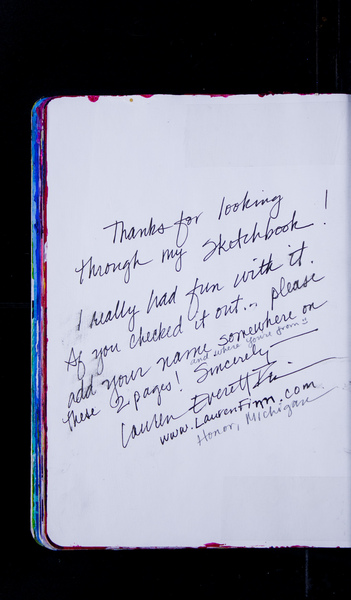 Thanks for looking
through my Sketchbook!
I really had fun with it.
If you checked it out... please
add your name somewhere on
and where you're from :)
these 2 pages! Sincerely
Lauren Everett Finn
www.LaurenFinn.com
Honor, Michigan